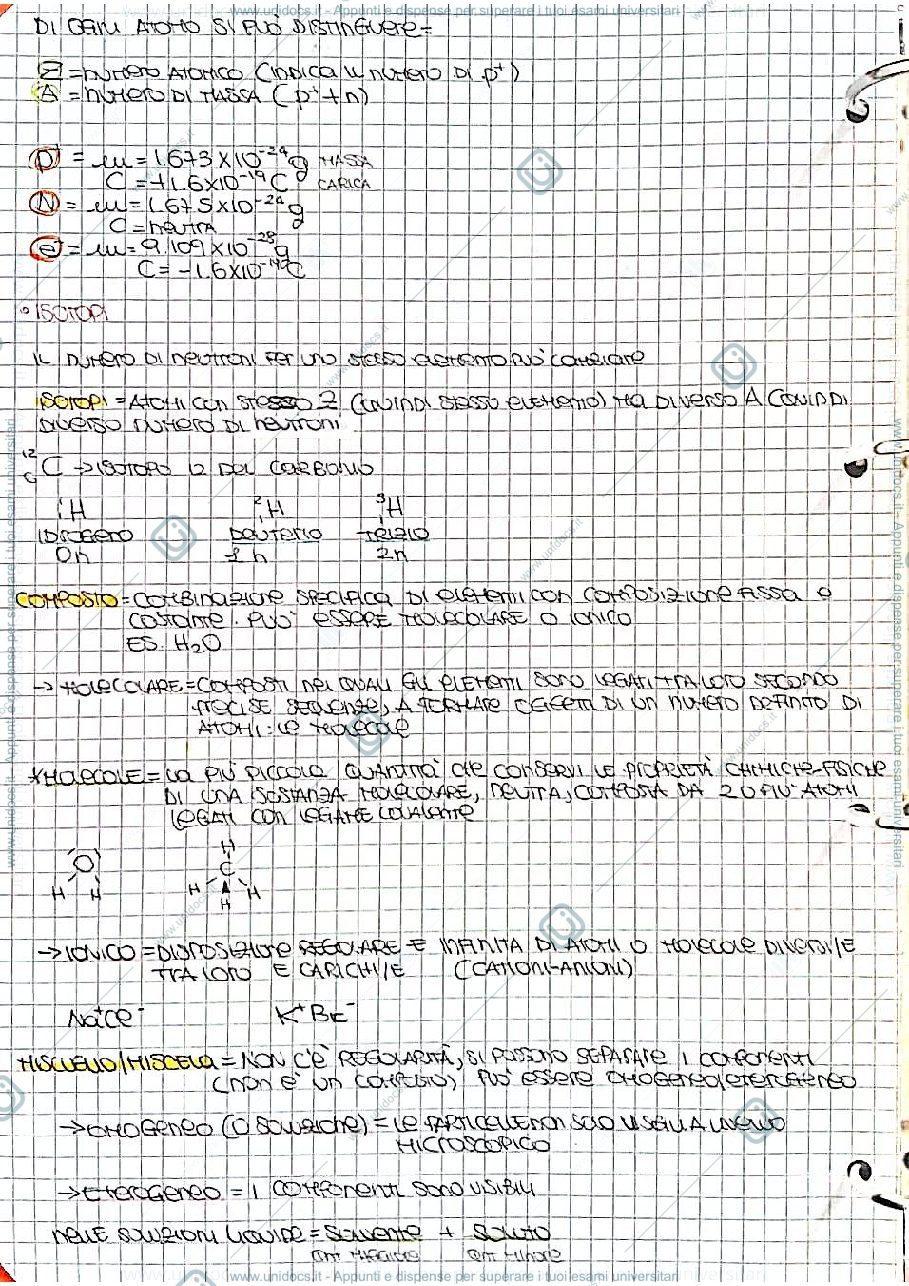 www.unidocs.it - Appunti e dispense per superare i tuoi esami universitari
DI OGNI ATOMO SI PUÒ DISTINGUERE=
Z = NUMERO ATOMICO (INDICA IL NUMERO DI p⁺)
A = NUMERO DI MASSA (p⁺+n)
p⁺ = m = 1.673 X 10⁻²⁴ g MASSA
C = +1.6X10⁻¹⁹ C CARICA
N = m = 1.675 X 10⁻²⁴ g
C = NEUTRA
e⁻ = m = 9.109 X 10⁻²⁸ g
C = -1.6X10⁻¹⁹ C
• ISOTOPI
IL NUMERO DI NEUTRONI PER UNO STESSO ELEMENTO PUÒ CAMBIARE
ISOTOPI = ATOMI CON STESSO Z (QUINDI STESSO ELEMENTO) MA DIVERSO A (QUINDI
DIVERSO NUMERO DI NEUTRONI
¹²₆C → ISOTOPO 12 DEL CARBONIO
¹₁H ²₁H ³₁H
IDROGENO DEUTERIO TRIZIO
0n 1n 2n
COMPOSTO = COMBINAZIONE SPECIFICA DI ELEMENTI CON COMPOSIZIONE FISSA e
COSTANTE. PUÒ ESSERE MOLECOLARE O IONICO
ES. H₂O
→ MOLECOLARE = COMPOSTI NEI QUALI GLI ELEMENTI SONO LEGATI TRA LORO SECONDO
PRECISE SEQUENZE, A FORMARE OGGETTI DI UN NUMERO DEFINITO DI
ATOMI: LE MOLECOLE
*MOLECOLE = LA PIÙ PICCOLA QUANTITÀ CHE CONSERVI LE PROPRIETÀ CHIMICHE-FISICHE
DI UNA SOSTANZA MOLECOLARE, NEUTRA, COMPOSTA DA 2 O PIÙ ATOMI
LEGATI CON LEGAME COVALENTE
H
O C
H H H H
H
→ IONICO = DISPOSIZIONE REGOLARE E INFINITA DI ATOMI O MOLECOLE DIVERSI/E
TRA LORO E CARICHI/E (CATIONI-ANIONI)
Na⁺Cl⁻ K⁺Br⁻
MISCUGLIO/MISCELA = NON C'È REGOLARITÀ, SI POSSONO SEPARARE I COMPONENTI
(NON È UN COMPOSTO) PUÒ ESSERE OMOGENEO/ETEROGENEO
→ OMOGENEO (O SOLUZIONE) = LE PARTICELLE NON SONO VISIBILI A LIVELLO
MICROSCOPICO
→ ETEROGENEO = I COMPONENTI SONO VISIBILI
NELLE SOLUZIONI LIQUIDE = SOLVENTE + SOLUTO
QNT MAGGIORE QNT MINORE
www.unidocs.it - Appunti e dispense per superare i tuoi esami universitari